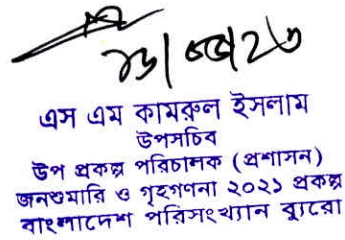 এস এম কামরুল ইসলাম
উপসচিব
উপ প্রকল্প পরিচালক (প্রশাসন)
জনশুমারি ও গৃহগণনা ২০২১ প্রকল্প
বাংলাদেশ পরিসংখ্যান ব্যুরো